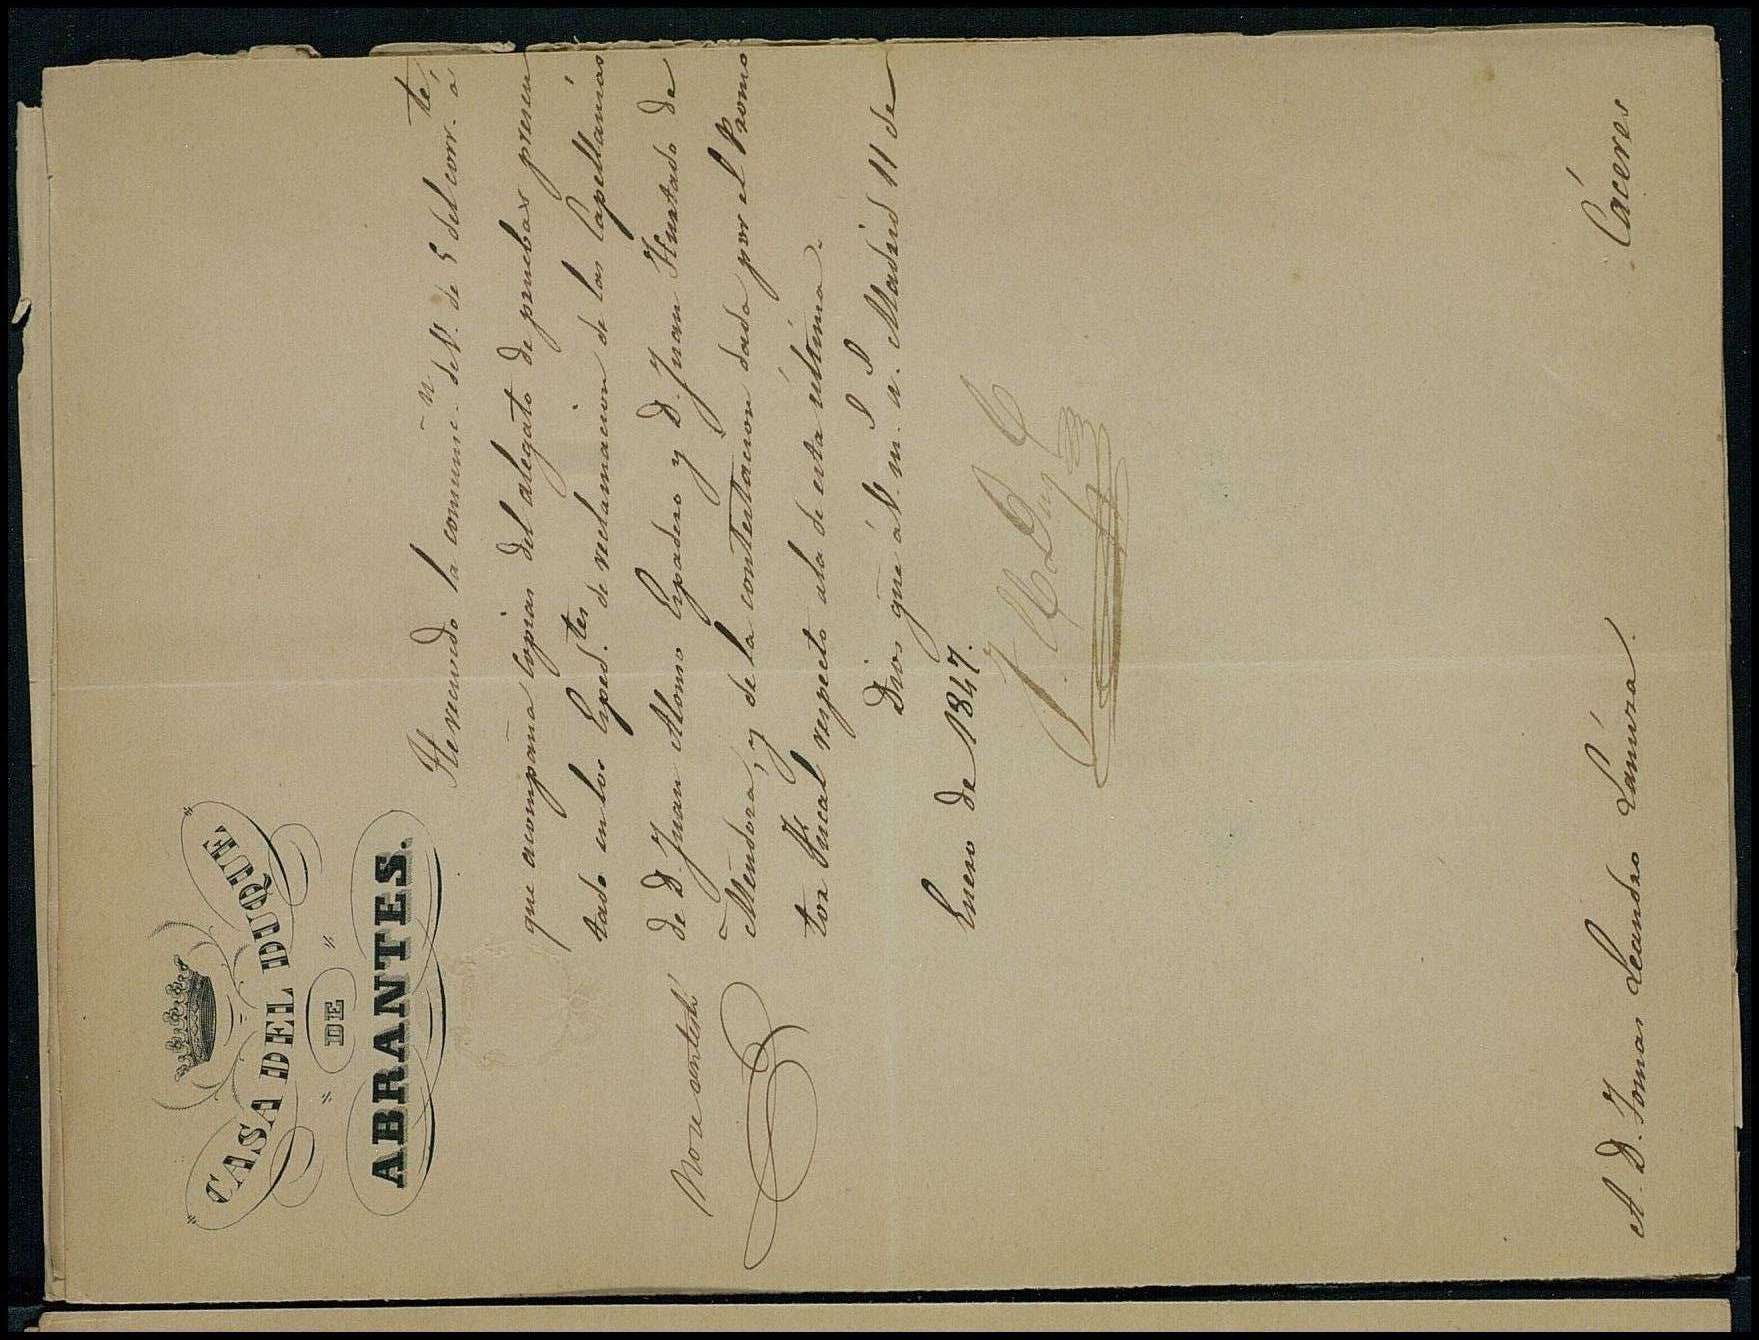 CASA DEL DUQUE
DE
ABRANTES.
He recivido la comunic.n de V. de 5 del corr.te á
que acompaña copias del alegato de pruebas presen
tado en los Esped.tes de reclamacion de las Capellanias
de D. Juan Alonso Espadero y D. Juan Hurtado de
Mendoza, y de la contestacion dada por el Promo
tor Fiscal respecto ala de esta ultima.
Dios gue á V. m. a. Madrid 11 de
Enero de 1847.
No se contestó
A D. Tomas Leandro Lamirza. Cáceres